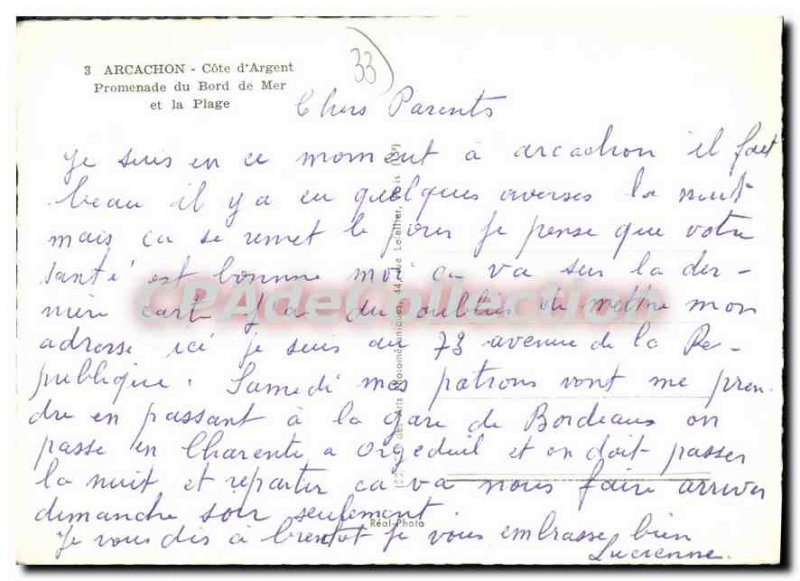 33
3 ARCACHON - Côte d'Argent
Promenade du Bord de Mer
et la Plage
Chers Parents
Je suis en ce moment à arcachon il fait
beau il y a eu quelques averses la nuit
mais ca se remet le jour je pense que votre
santé est bonne moi ca va sur la der-
nière cart j'ai du oublier de mettre mon
adresse ici je suis au 73 avenue de la Re-
publique. Samedi mes patrons vont me pren-
dre en passant à la gare de Bordeaux on
passe en Charente a Orgedeuil et on doit passer
la nuit et repartir ca va nous faire arriver
dimanche soir seulement
Je vous dis à bientot je vous embrasse bien
Lucienne
Réal-Photo
CPADeCollection